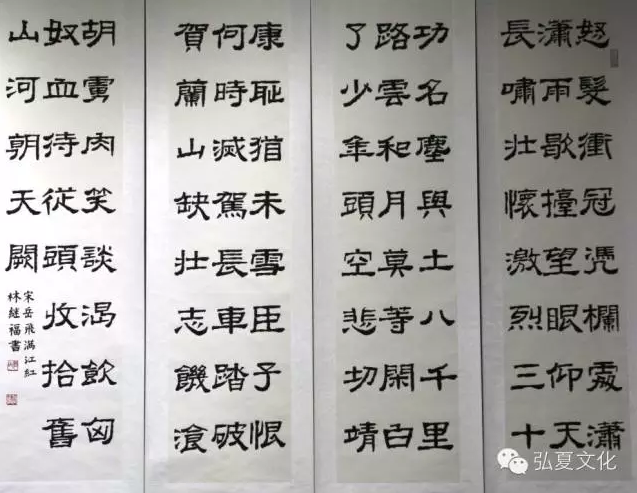 怒髮衝冠凭欄處瀟
瀟雨歇擡望眼仰天
長嘯壯懷激烈三十
功名塵與土八千里
路雲和月莫等閑白
了少年頭空悲切靖
康恥猶未雪臣子恨
何時滅駕長車踏破
賀蘭山缺壯志饑飡
胡虜肉笑談渴飲匈
奴血待從頭收拾舊
山河朝天闕
宋岳飛满江红
林继福書
弘夏文化